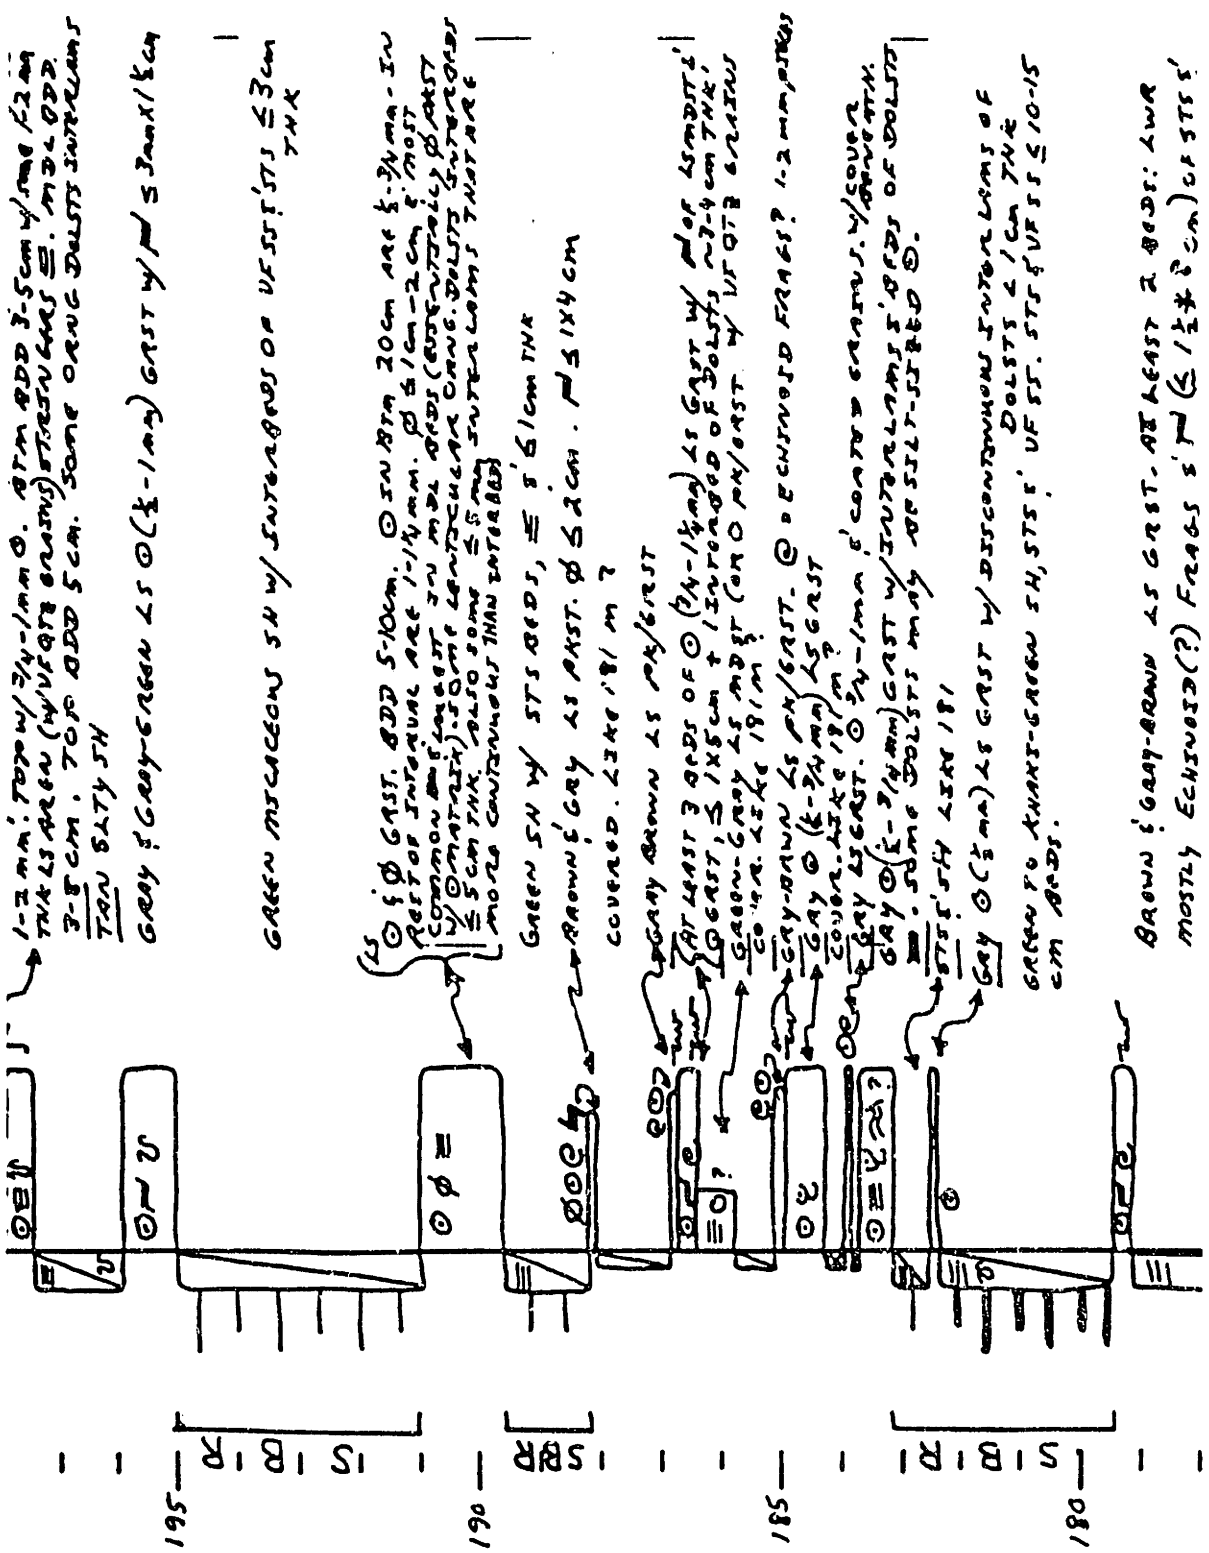 1-2 mm. TOP W/ 3/4-1 mm ⊙. BTM BDD 3-5 cm W/ SOME
THK LS ARGN (W/VFQTZ GRAINS) STRINGERS ≡. MDL BDD.
3-8 cm. TOP BDD 5 cm. SOME ORNG DOLSTS INTERLAMS
TAN SLTY SH
GRAY & GRAY-GREEN LS ⊙ (½-1 mm) GRST W/ ≤ 3mm X 1½ cm
GREEN MICACEOUS SH W/ INTERBDS OF VF SS & STS ≤ 3 cm
THK
195
LS
⊙ & Ø GRST. BDD 5-10cm. ⊙ IN BTM 20 cm ARE ½-3/4 mm - IN
REST OF INTERVAL ARE 1-1¼ mm. Ø ≤ 1 cm - 2 cm & MOST
COMMON & LARGEST IN MDL BEDS (ESSENTIALLY Ø PKST
W/ ⊙ MATRIX). SOME LENTICULAR ORNG. DOLSTS INTERBEDS
≤ 5 cm THK, ALSO SOME ≤ 5 mm INTERLAMS THAT ARE
MORE CONTINUOUS THAN INTERBEDS
190
GREEN SH W/ STS BEDS, ≡ & ≤ 1 cm THK
BROWN & GRAY LS PKST. Ø ≤ 2 cm. ≤ 1X4 cm
COVERED. LIKE 181 m?
GRAY BROWN LS PK/GRST
AT LEAST 3 BEDS OF ⊙ (3/4-1¼ mm) LS GRST W/ OF LSMDST &
⊙ GRST, ≤ 1X5 cm + 1 INTERBED OF DOLSTS ~3-4 cm THK
GREEN-GRAY LS MDST (OR O PK/GRST W/ VF QTZ GRAINS
COVER. LIKE 181 m?
GRAY-BRWN LS PK/GRST. @ = ECHINOID FRAGS? 1-2 mm
GRAY ⊙ (½-3/4 mm) LS GRST
COVER. LIKE 181 m?
185
GRAY LS GRST. ⊙ 3/4-1 mm & COATED GRAINS. W/COVER
BENEATH.
GRAY ⊙ (½-3/4 mm) GRST W/ INTERLAMS & BEDS OF DOLSTS
SOME DOLSTS MAY BE SILT-SIZED ⊙.
STS & SH LIKE 181
GRY ⊙ (½ mm) LS GRST W/ DISCONTINUOUS INTERLAMS OF
DOLSTS < 1 cm THK
GREEN TO KHAKI-GREEN SH, STS & VF SS. STS & VF SS ≤ 10-15
cm BEDS.
180
BROWN & GRAY-BRWN LS GRST. AT LEAST 2 BEDS: LWR
MOSTLY ECHINOID(?) FRAGS & OF STS &
R
B
S
R
B
S
R
B
S